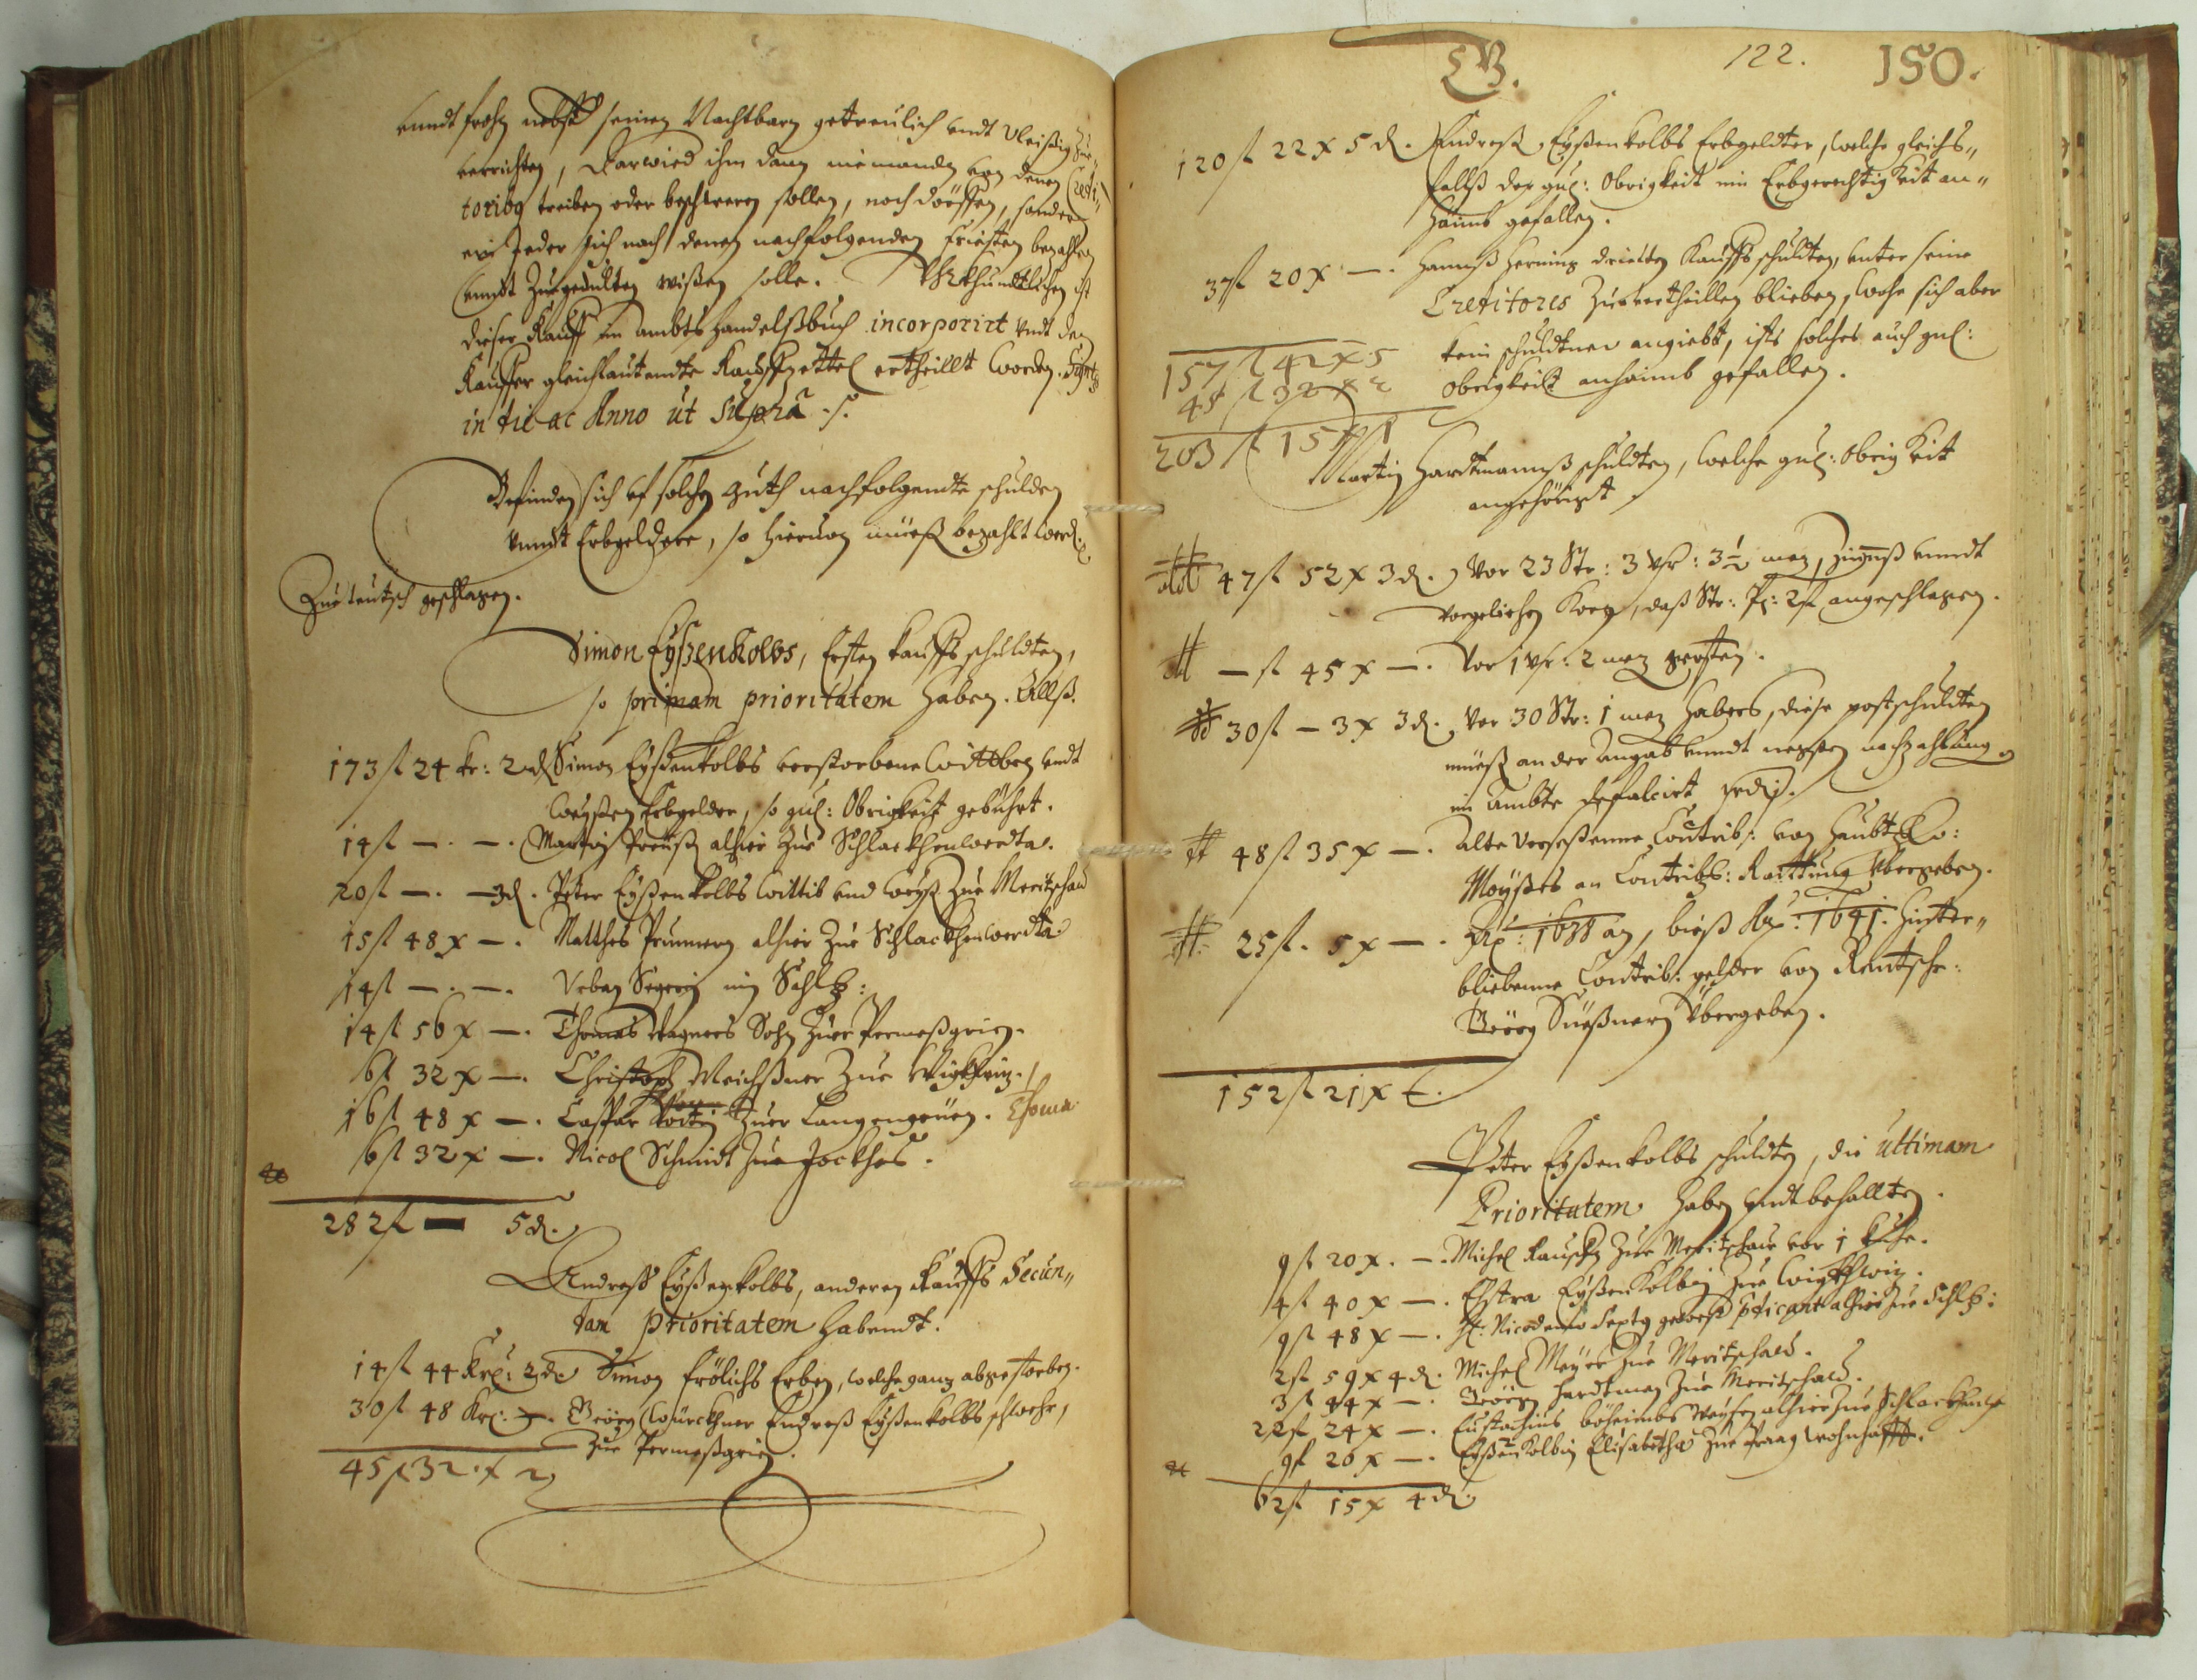 vnndt frohn nebst seinen Nachtbarn getreulich vndt vleißig Zue
verrichten, Darwied ihm dann niemandt von denen Credi„
toribg treiben oder beschweren sollen, noch dörffen, sonder
ein Jeder sich nach denen nachfolgenden Friesten bezahlen
vnndt Zuegedulten wißen solle. Vhrkhundtlichen ist
dieser Kauff im ambts Handelßbuch incorporirt vndt den
Kauffer gleichlautendte Kauffzettel ertheillt worden. Signt
in die ac Anno ut Supra ./.
Befinden sich vf solchen Gueth nachfolgendte schulden
vnndt Erbgeldere, so hieruon müeß bezahlt werd.
Zue teutsch geschlagen.
Simon Eyßenkolbs, Ersten kauffs schuldten,
so primam prioritatem haben. Alß.
173 fl 24 kr: 2 d Simon Eyßenkolbs verstorbene Wittben vndt
Weyßen Erbgelder, so gnl: Obrigkeit gebührt.
14 fl —. —. Martin Preuß alhier Zue Schlackhenwerdta.
20 fl —. —3d. Peter Eyßenkolbs Wittib vnd Weyß Zue Meritschau
15 fl 48 x —. Matthes Prunnern alhier Zue Schlackhenwerdta
14 fl —. —. Vrban Segerin im Schlg:
14 fl 56 x —. Thomas Wagners Sohn Zuer Permeßgrien.
6 fl 32 x —. Christoph Meichßner Zue Wickhwiz.
16 fl 48 x —. Caspar Zuer Langengrüen.
6 fl 32 x —. Nicol Schmidt Zue Jockhes.
282 fl — 5 d.
Andreß Eyßenkolbs, anderen Kauffs Secun„
dam prioritatem habendt.
14 fl 44 Kr: 2 d. Simon Frölichs Erben, welche ganz abgestorben.
30 fl 48 Kr: —. Geörg Würckhner Endreß Eyßenkolbs schwehr,
Zue Permeßgrien.
45 fl 32 x 2
122. 150.
120 fl 22 x 5 d. Endreß Eyßenkolbs Erbgeldter, welche gleichs„
falls der gnl: Obrigkeit im Erbgerechtigkeit an„
haimb gefallen.
37 fl 20 x —. Hannß Hernings drietten Kauffs schuldten, vnter seine
Creditores Zuuertheillen blieben, wehe sich aber
kein schuldtner angiebt, ists solches auch gnl:
Obrigkeit anhaimb gefallen.
157 fl 42 x 5
45 fl 32 x 2
203 fl 15 x 1
Martin Hardtmannß schuldten, welche gnl: Obrigkeit
angehörigt
47 fl 52 x 3 d. Vor 23 Str: 3 Vr: 3½ mez, Zinnß vnndt
vorgeliehen Korn, daß Str: P: 2 fl angeschlagen.
— fl 45 x —. Vor 1 Vr: 2 mez gersten.
30 fl — 3 x 3 d. Vor 30 Str: 1 mez Habers, diese postschuldten
müeß an der Angab vnndt negsten nachzahlung
im Ambte defalcirt
48 fl 35 x —. Alte verseßenne Contrib: von Haubt
Moyßes an Contribs: Raittung Vbergeben.
25 fl. 5 x —. 1638 an, bieß Ao: 1641. hinter„
bliebenne Contrib: gelder von Rentschr:
Geörg Sueßnern Übergeben.
152 fl 21 x
Peter Eyßenkolbs schuldten, die ultimam
Prioritatem haben vndt behallten.
9 fl 20 x. —. Michel Rauschen Zue Meritschau vor 1 Kuhe.
4 fl 40 x —. Estra Eyßenkolbin Zue Wickhwiz.
9 fl 48 x —. H: Nicodemo Septg geweß alhier Zue Schlg:
2 fl 59 x 4 d. Michel Meyer Zue Meritschau.
3 fl 44 x —. Geörg Hardtman Zue Meritschau.
22 fl 24 x —. Eustachius böheimbs Weysen alhier Zue Schlackhenw
9 fl 20 x —. Eyßenkolbin Elisabetha Zue Praag wohnhafft.
62 fl 15 x 4 d.